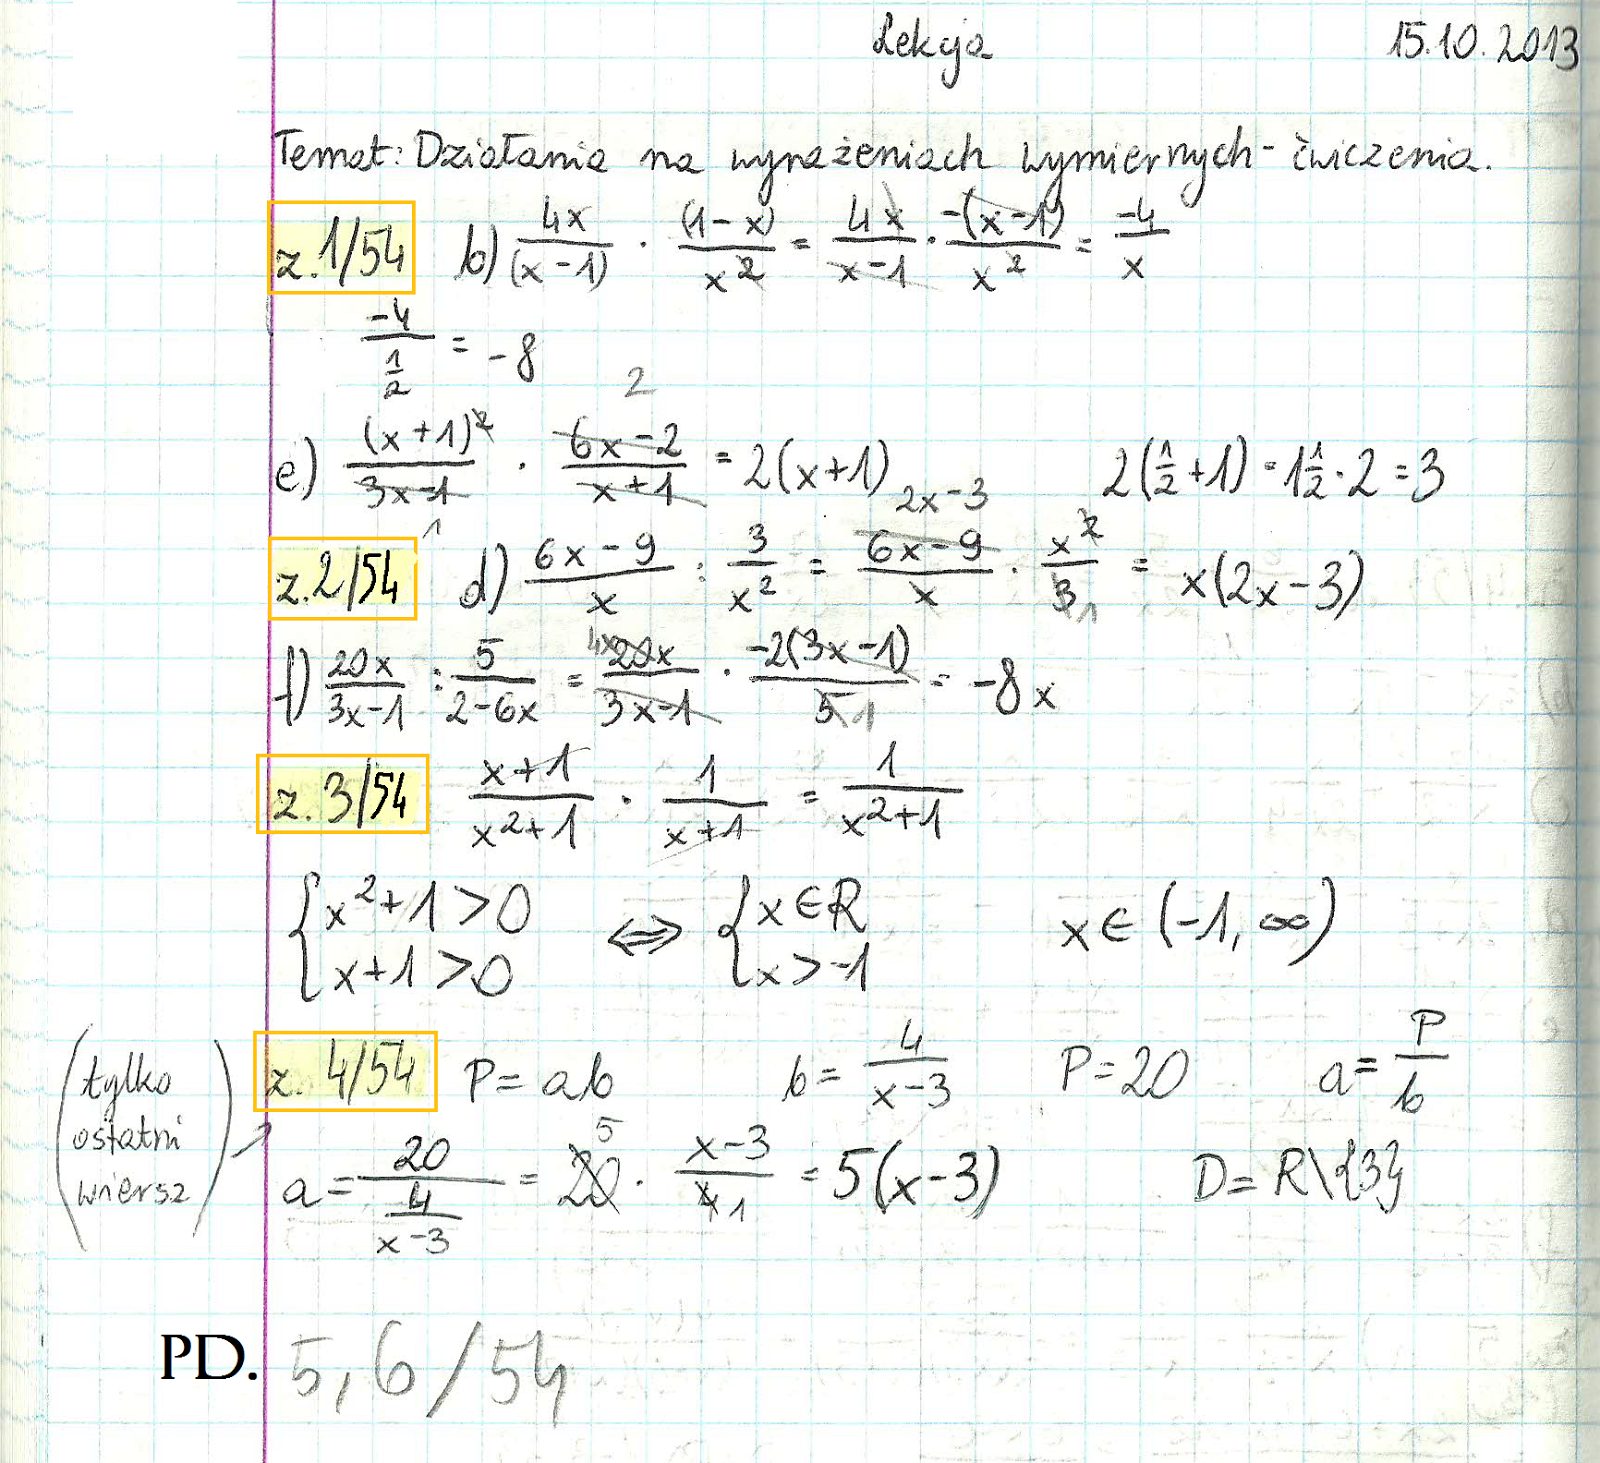 Lekcja 15.10.2013
Temat: Działania na wyrażeniach wymiernych - ćwiczenia.
z.1/54 b) \frac{4x}{(x-1)} · \frac{(1-x)}{x^2} = \frac{4x}{x-1} · \frac{-(x-1)}{x^2} = \frac{-4}{x}
\frac{-4}{\frac{1}{2}} = -8
e) \frac{(x+1)^2}{3x-1} · \frac{6x-2}{x+1} = 2(x+1) 2(\frac{1}{2}+1) = 1\frac{1}{2}·2 = 3
z.2/54 d) \frac{6x-9}{x} : \frac{3}{x^2} = \frac{6x-9}{x} · \frac{x^2}{3} = x(2x-3)
f) \frac{20x}{3x-1} : \frac{5}{2-6x} = \frac{20x}{3x-1} · \frac{-2(3x-1)}{5} = -8x
z.3/54 \frac{x+1}{x^2+1} · \frac{1}{x+1} = \frac{1}{x^2+1}
{x^2+1>0 ⇔ {x∈R x∈(-1, ∞)
{x+1>0 {x>-1
(tylko ostatni wiersz)
z. 4/54 P = ab b = \frac{4}{x-3} P = 20 a = \frac{P}{b}
a = \frac{20}{\frac{4}{x-3}} = 20 · \frac{x-3}{4} = 5(x-3) D = R\{3}
PD. 5, 6/54